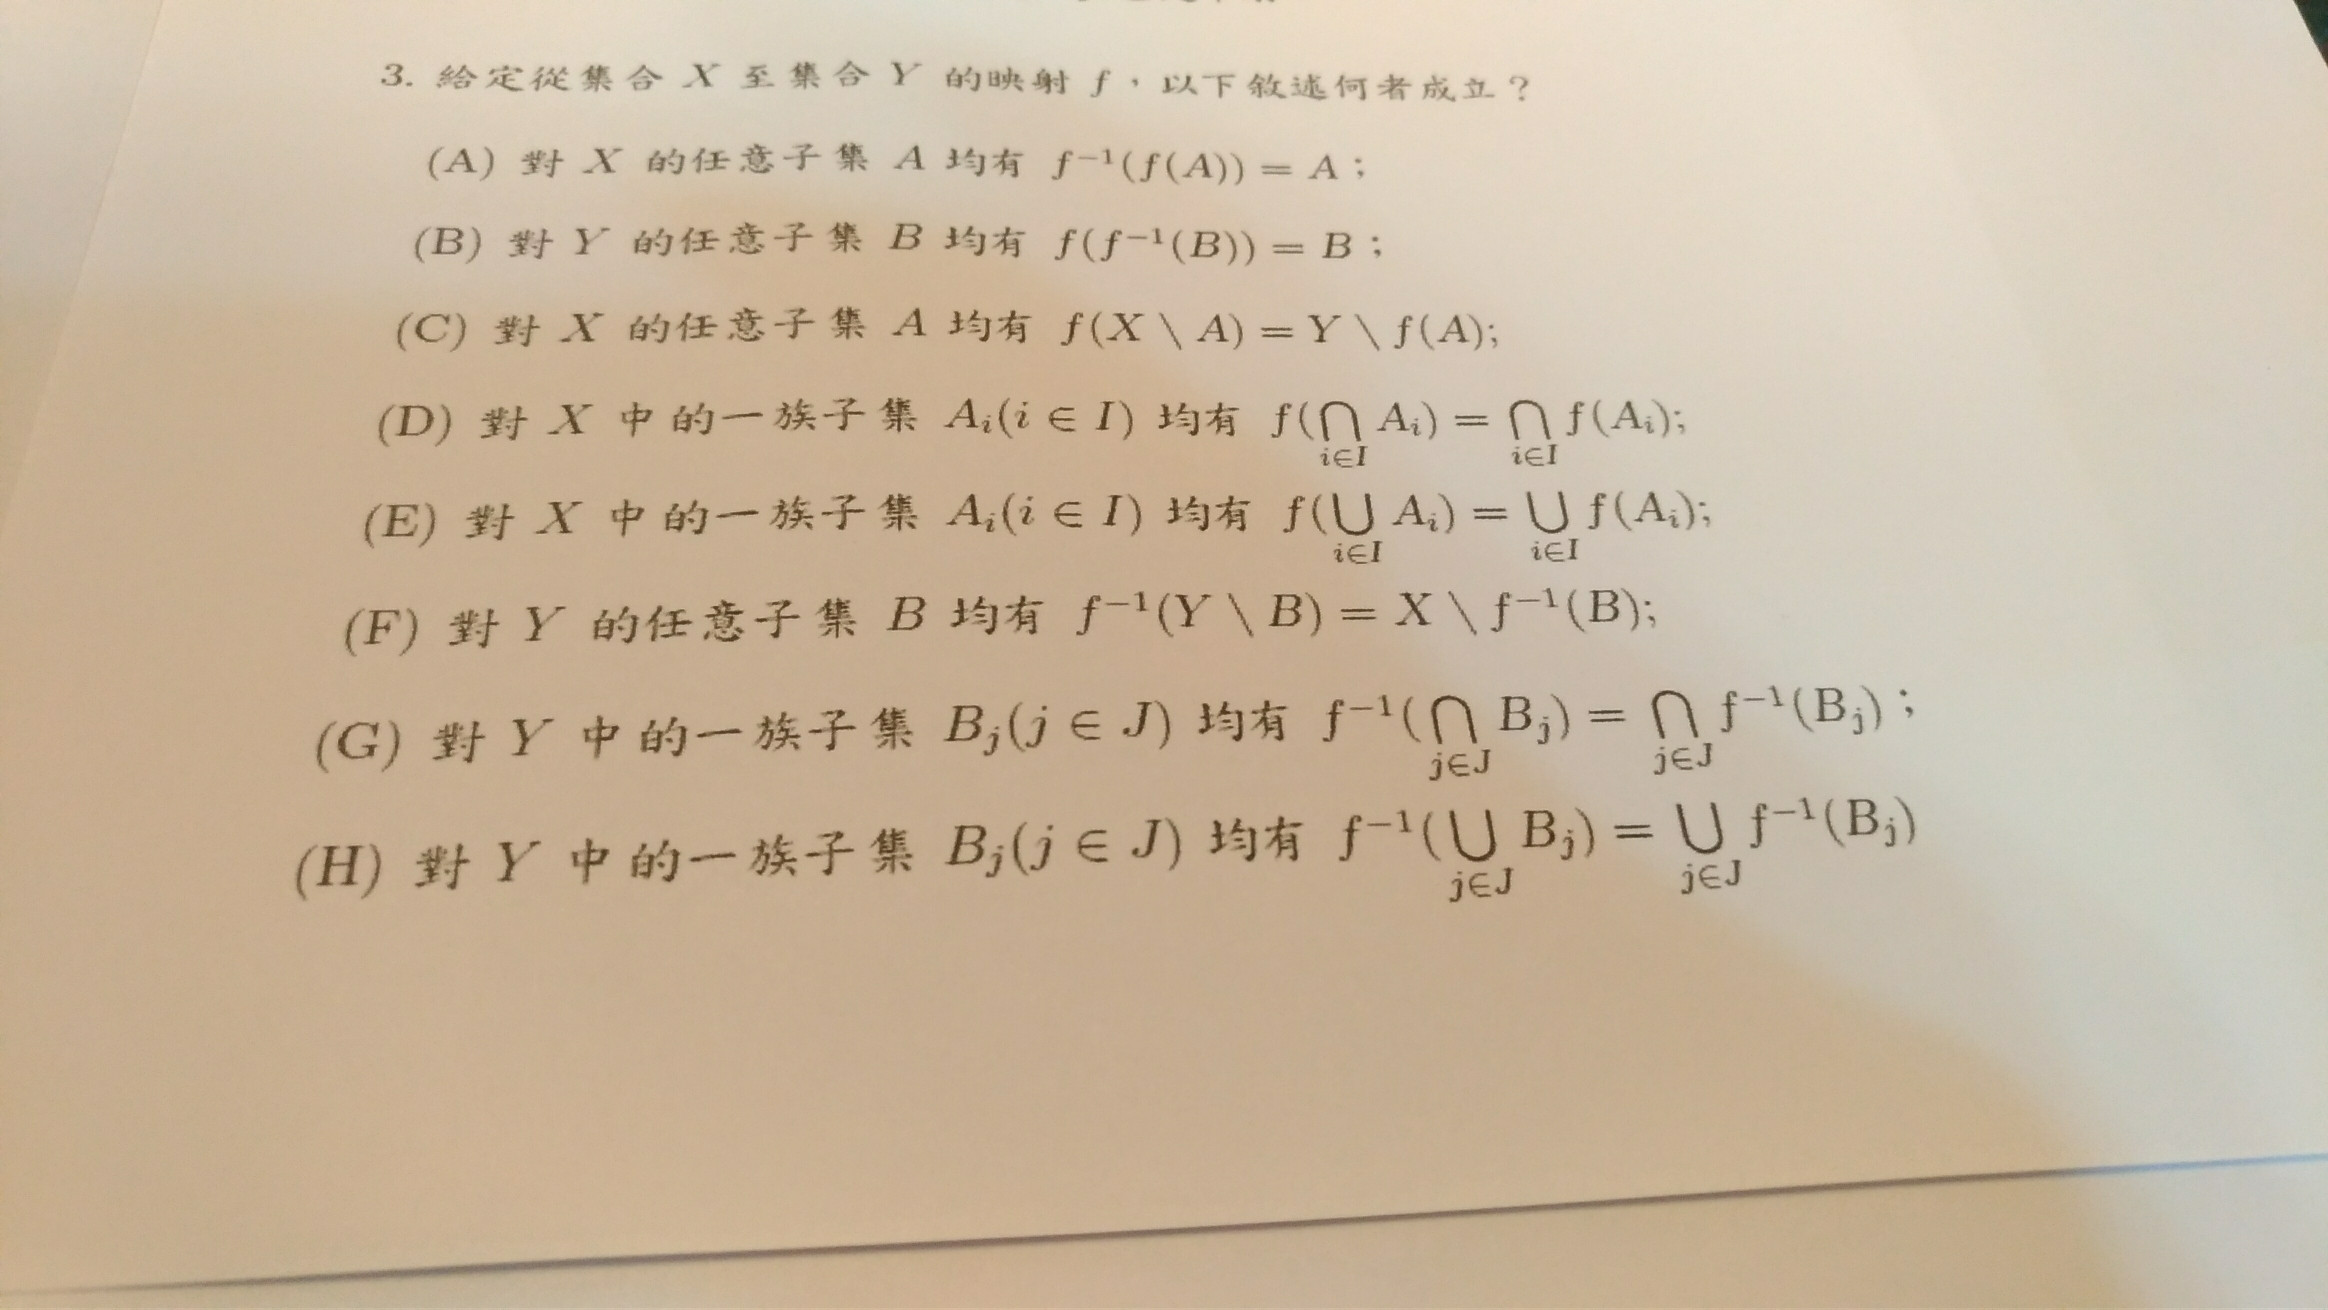 3. 給定從集合 X 至集合 Y 的映射 f，以下敘述何者成立？
(A) 對 X 的任意子集 A 均有 f⁻¹(f(A)) = A；
(B) 對 Y 的任意子集 B 均有 f(f⁻¹(B)) = B；
(C) 對 X 的任意子集 A 均有 f(X \ A) = Y \ f(A);
(D) 對 X 中的一族子集 Aᵢ(i ∈ I) 均有 f(⋂_{i∈I} Aᵢ) = ⋂_{i∈I} f(Aᵢ);
(E) 對 X 中的一族子集 Aᵢ(i ∈ I) 均有 f(⋃_{i∈I} Aᵢ) = ⋃_{i∈I} f(Aᵢ);
(F) 對 Y 的任意子集 B 均有 f⁻¹(Y \ B) = X \ f⁻¹(B);
(G) 對 Y 中的一族子集 Bⱼ(j ∈ J) 均有 f⁻¹(⋂_{j∈J} Bⱼ) = ⋂_{j∈J} f⁻¹(Bⱼ)；
(H) 對 Y 中的一族子集 Bⱼ(j ∈ J) 均有 f⁻¹(⋃_{j∈J} Bⱼ) = ⋃_{j∈J} f⁻¹(Bⱼ)